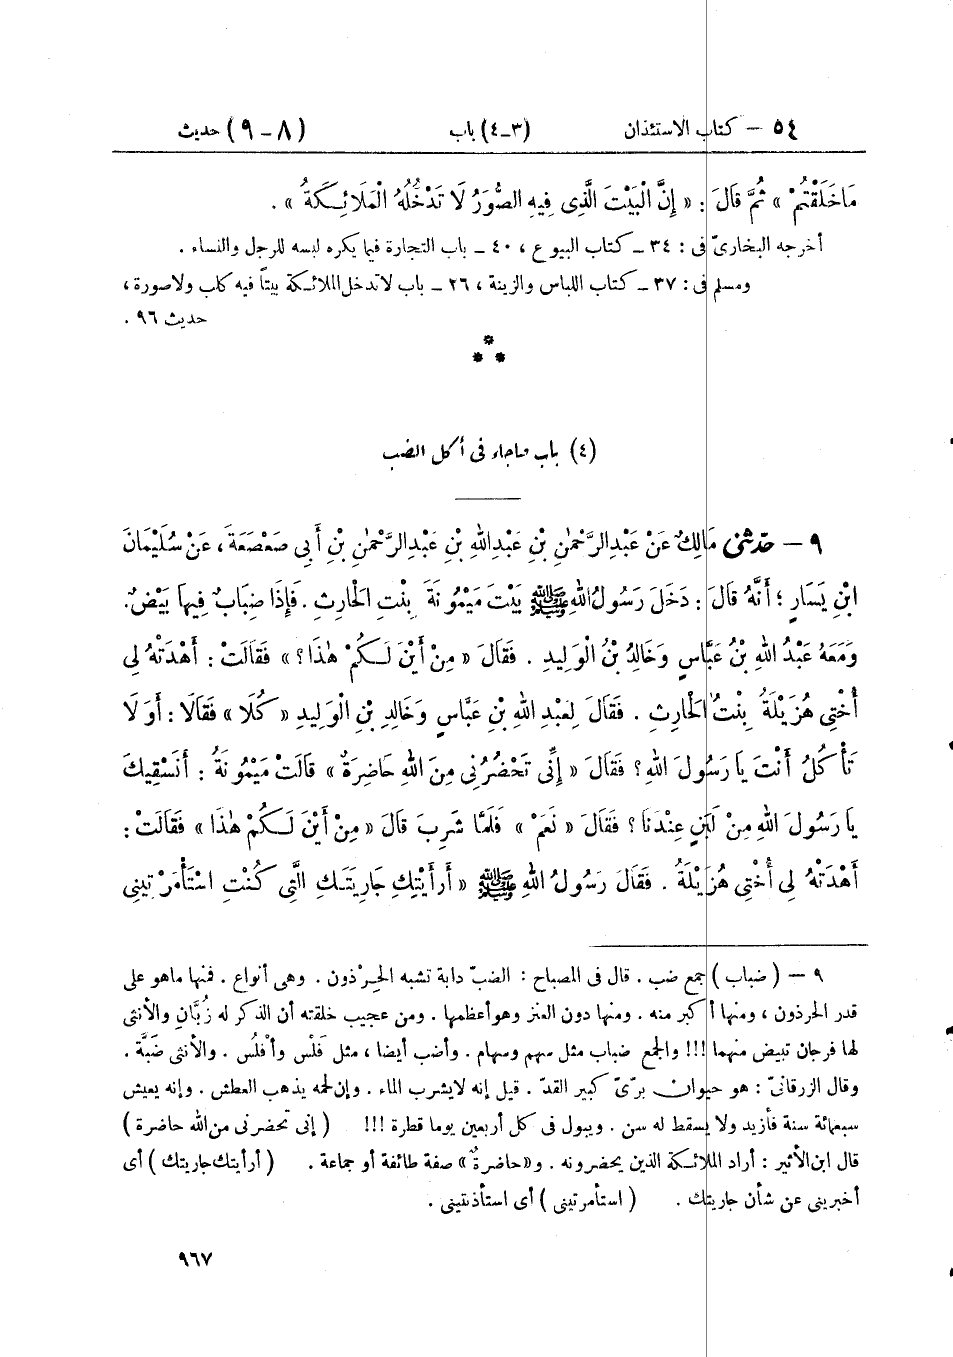 ٥٤ – كتاب الاستئذان (٣–٤) باب (٨–٩) حديث
مَا خَلَقْتُمْ » ثُمَّ قَالَ : « إِنَّ الْبَيْتَ الَّذِى فِيهِ الصُّوَرُ لَا تَدْخُلُهُ الْمَلَائِكَةُ » .
أخرجه البخارىّ فى : ٣٤ – كتاب البيوع ، ٤٠ – باب التجارة فيما يكره لبسه للرجل والنساء .
ومسلم فى : ٣٧ – كتاب اللباس والزينة ، ٢٦ – باب لا تدخل الملائكة بيتًا فيه كلب ولا صورة ،
حديث ٩٦ .
*
* *
(٤) باب ماجاء فى أكل الضب
٩ – حَدَّثَنِى مَالِكٌ عَنْ عَبْدِ الرَّحْمٰنِ بْنِ عَبْدِ اللهِ بْنِ عَبْدِ الرَّحْمٰنِ بْنِ أَبِى صَعْصَعَةَ ، عَنْ سُلَيْمَانَ
ابْنِ يَسَارٍ ؛ أَنَّهُ قَالَ : دَخَلَ رَسُولُ اللهِ ﷺ بَيْتَ مَيْمُونَةَ بِنْتِ الْحَارِثِ . فَإِذَا ضِبَابٌ فِيهَا بَيْضٌ .
وَمَعَهُ عَبْدُ اللهِ بْنُ عَبَّاسٍ وَخَالِدُ بْنُ الْوَلِيدِ . فَقَالَ « مِنْ أَيْنَ لَكُمْ هٰذَا ؟ » فَقَالَتْ : أَهْدَتْهُ لِى
أُخْتِى هُزَيْلَةُ بِنْتُ الْحَارِثِ . فَقَالَ لِعَبْدِ اللهِ بْنِ عَبَّاسٍ وَخَالِدِ بْنِ الْوَلِيدِ « كُلَا » فَقَالَا : أَوَلَا
تَأْكُلُ أَنْتَ يَا رَسُولَ اللهِ ؟ فَقَالَ « إِنِّى تَحْضُرُنِى مِنَ اللهِ حَاضِرَةٌ » قَالَتْ مَيْمُونَةُ : أَنَسْقِيكَ
يَا رَسُولَ اللهِ مِنْ لَبَنٍ عِنْدَنَا ؟ فَقَالَ « نَعَمْ » فَلَمَّا شَرِبَ قَالَ « مِنْ أَيْنَ لَكُمْ هٰذَا » فَقَالَتْ :
أَهْدَتْهُ لِى أُخْتِى هُزَيْلَةُ . فَقَالَ رَسُولُ اللهِ ﷺ « أَرَأَيْتِكِ جَارِيَتَكِ الَّتِى كُنْتِ اسْتَأْمَرْتِينِى
٩ – ( ضباب ) جمع ضب . قال فى المصباح : الضبّ دابة تشبه الحِرْذون . وهى أنواع . فمنها ماهو على
قدر الحرذون ، ومنها أكبر منه . ومنها دون العنز وهو أعظمها . ومن عجيب خلقته أن الذكر له زُبَّانِ والأنثى
لها فرجان تبيض منهما !!! والجمع ضباب مثل سهم وسهام . وأضب أيضا ، مثل فَلْس وأفْلُس . والأنثى ضَبَّة .
وقال الزرقانىّ : هو حيوان برّىّ كبير القدّ . قيل إنه لا يشرب الماء . وإن لحمه يذهب العطش . وإنه يعيش
سبعمائة سنة فأزيد ولا يسقط له سن . ويبول فى كل أربعين يوما قطرة !!! ( إنى تحضرنى من الله حاضرة )
قال ابن الأثير : أراد الملائكة الذين يحضرونه . و«حاضرةٌ» صفة طائفة أو جماعة . ( أرأيتك جاريتك ) أى
أخبرينى عن شأن جاريتك . ( استأمرتينى ) أى استأذنتينى .
٩٦٧